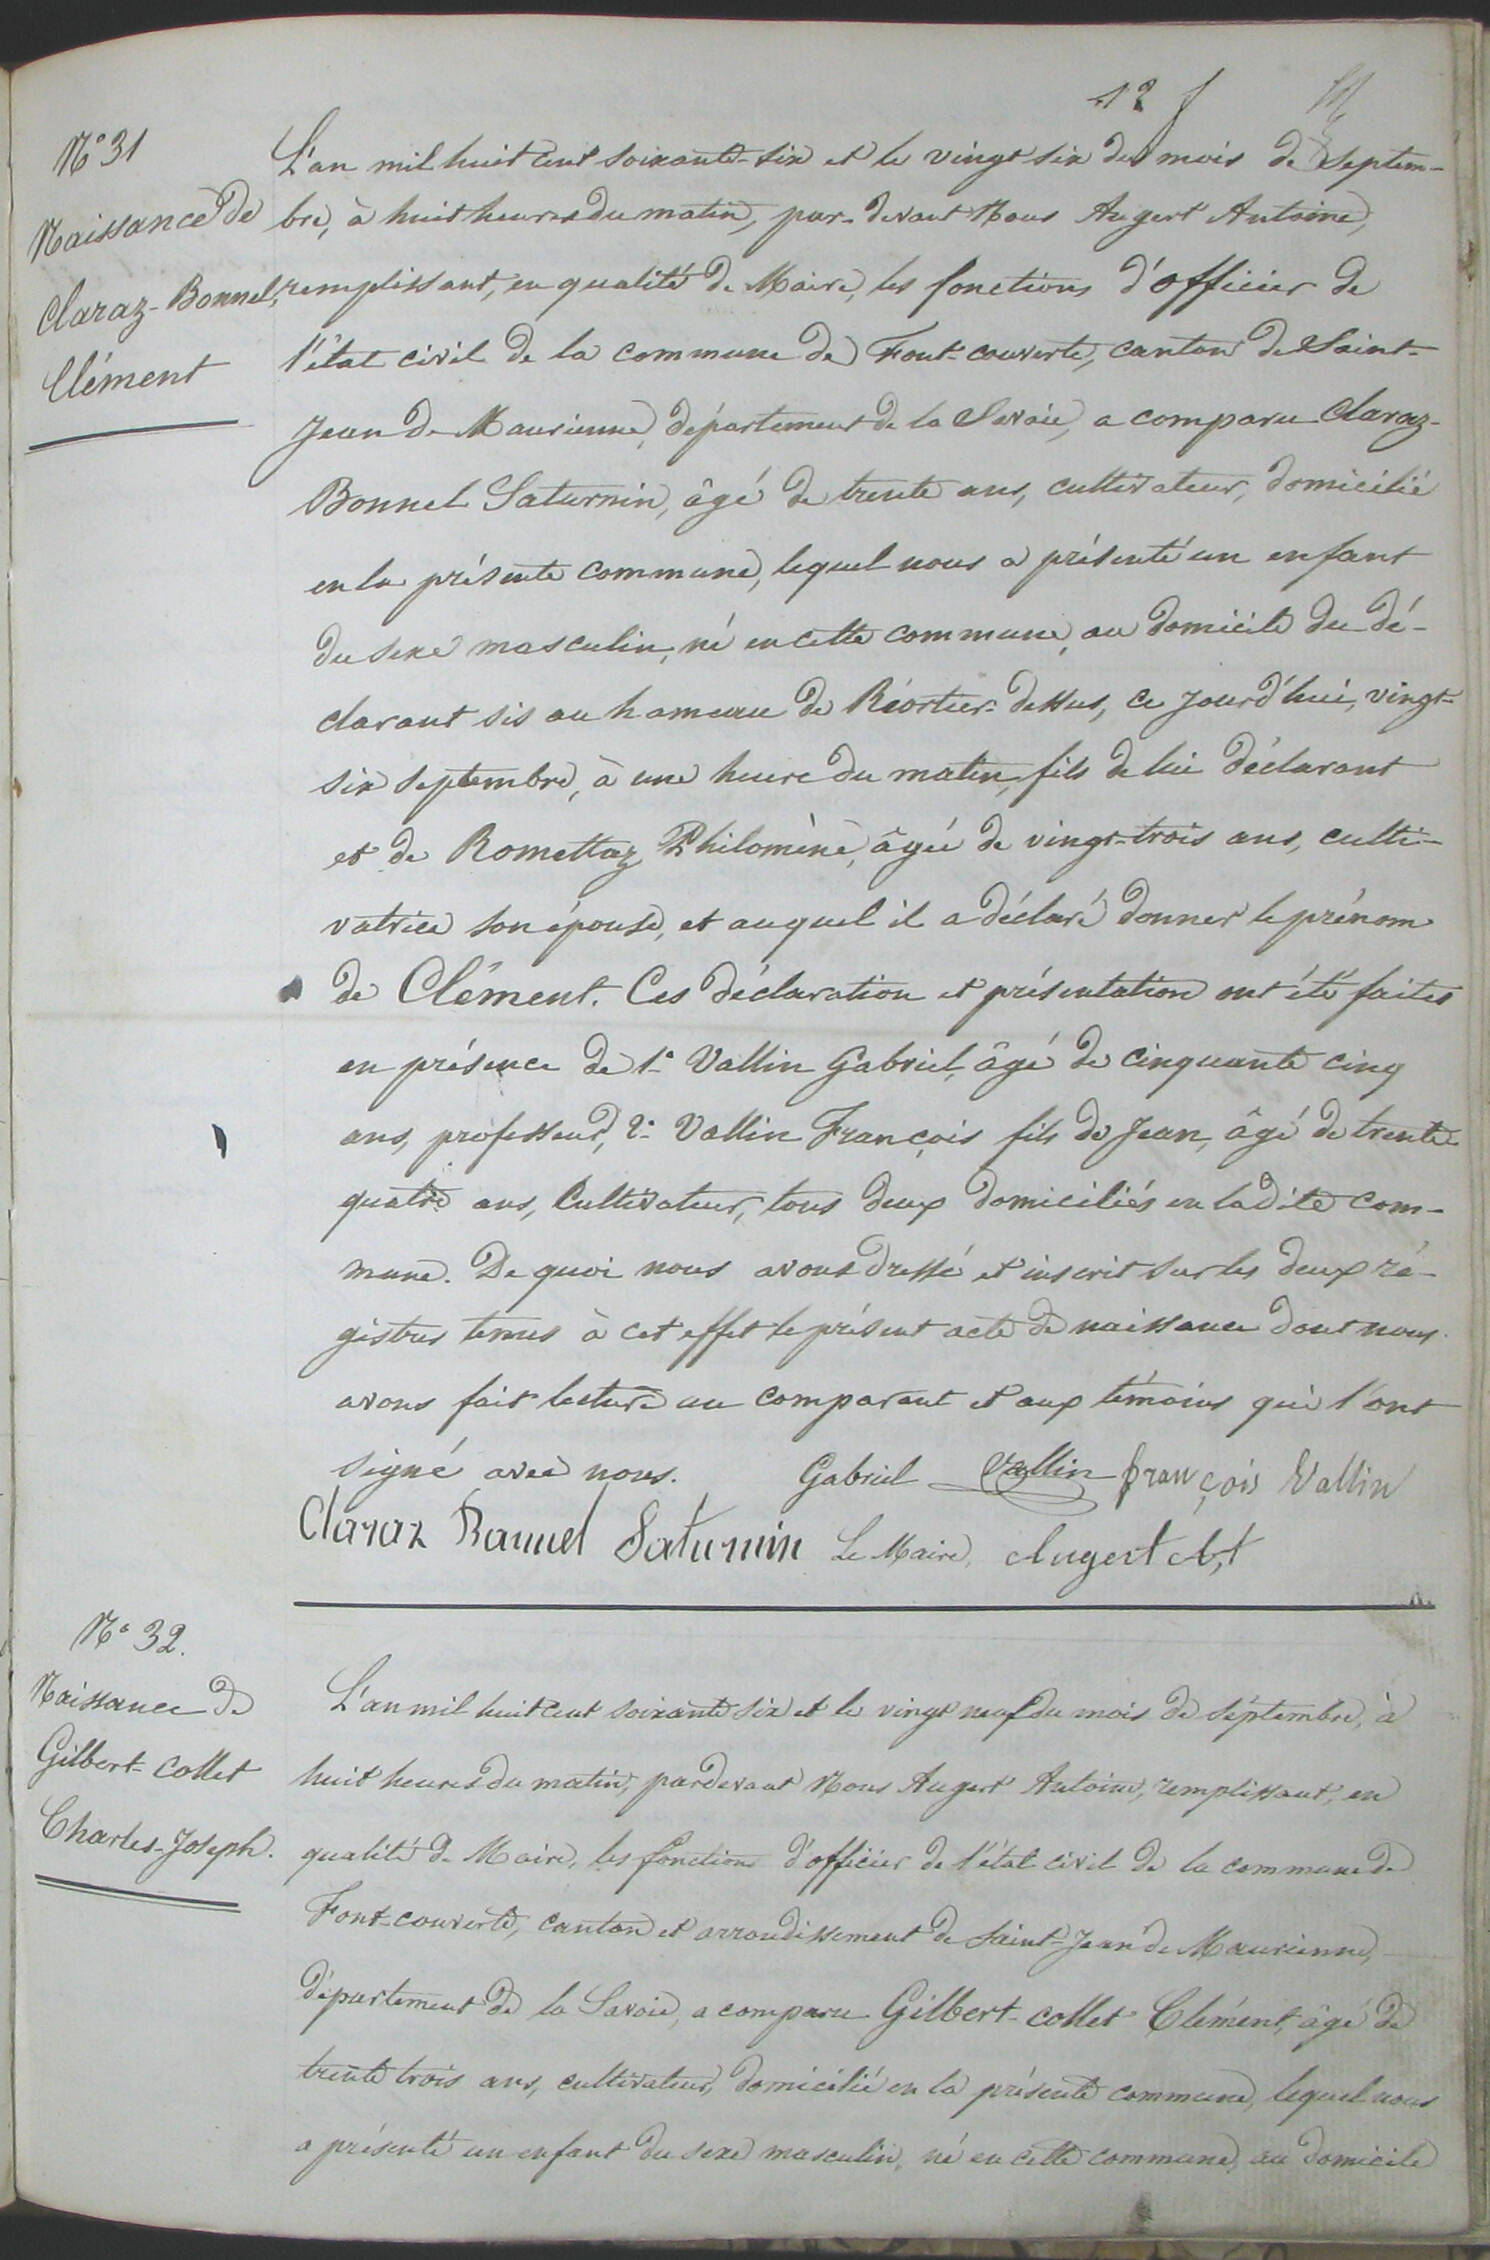 12
N° 31
Naissance de
Claraz-Bonnel,
Clément
L'an mil huit cent soixante-six et le vingt six du mois de Septem-
bre, à huit heures du matin, par-devant Nous Augert Antoine,
remplissant, en qualité de Maire, les fonctions d'officier de
l'état civil de la commune de Font-couverte, canton de Saint-
Jean de Maurienne, département de la Savoie, a comparu Claraz-
Bonnel Saturnin, âgé de trente ans, cultivateur, domicilié
en la présente commune, lequel nous a présenté un enfant
du sexe masculin, né en cette commune, au domicile du dé-
clarant sis au hameau de Riortier-dessus, ce jourd'hui, vingt-
six septembre, à une heure du matin, fils de lui déclarant
et de Romettaz Philomène, âgée de vingt-trois ans, culti-
vatrice son épouse, et auquel il a déclaré donner le prénom
de Clément. Ces déclaration et présentation ont été faites
en présence de 1° Vallin Gabriel, âgé de cinquante cinq
ans, professeur, 2° Vallin François fils de Jean, âgé de trente-
quatre ans, Cultivateur, tous deux domiciliés en ladite com-
mune. De quoi nous avons dressé et inscrit sur les deux ré-
gistres tenus à cet effet le présent acte de naissance dont nous
avons fait lecture au comparant et aux témoins qui l'ont
signé avec nous. Gabriel Vallin françois Vallin
Claraz Bannel Saturnin Le Maire, Augert Ant
N° 32.
Naissance de
Gilbert-Collet
Charles-Joseph.
L'an mil huit cent soixante six et le vingt neuf du mois de septembre, à
huit heures du matin, pardevant Nous Augert Antoine, remplissant, en
qualité de Maire, les fonctions d'officier de l'état civil de la commune de
Font-couverte, canton et arrondissement de Saint-Jean de Maurienne,
département de la Savoie, a comparu Gilbert-Collet Clément, âgé de
trente trois ans, cultivateur, domicilié en la présente commune, lequel nous
a présenté un enfant du sexe masculin, né en cette commune, au domicile